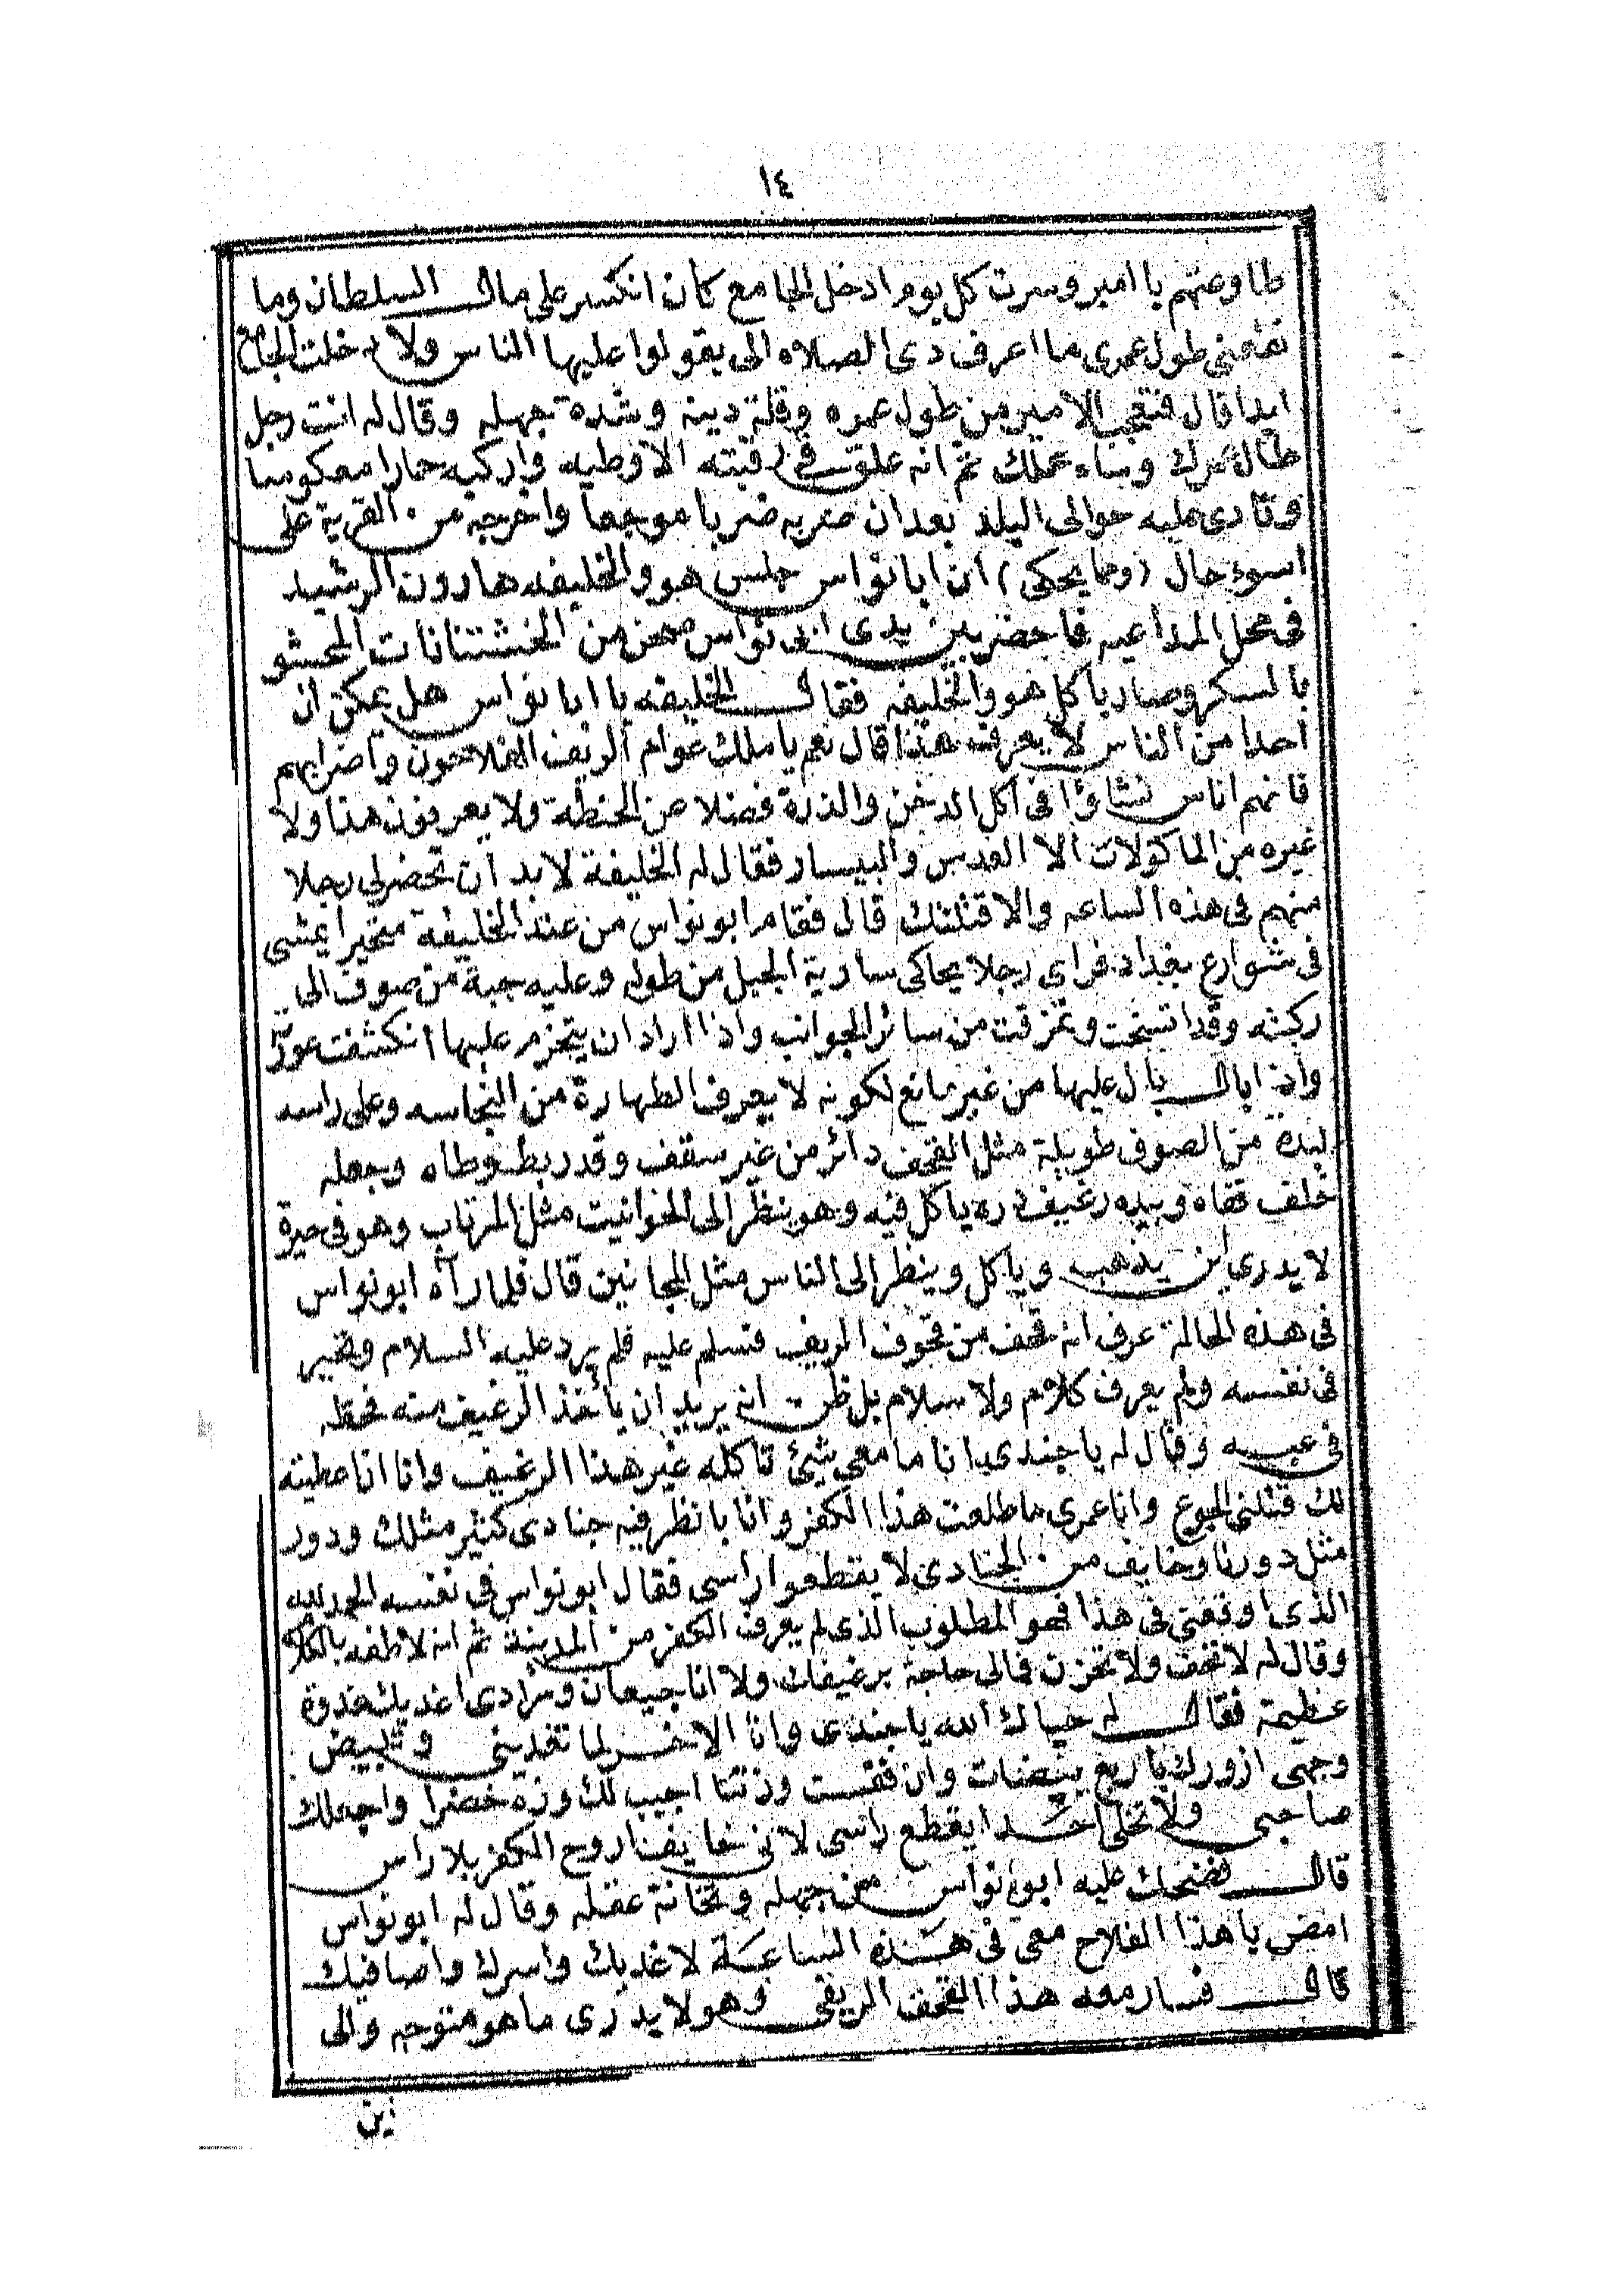 ١٤
طاوعتهم يا امير وسرت كل يوم ادخل الجامع كان انكسر على مال السلطان وما
نفعنى طول عمرى ما اعرف دى الصلاه الى يقولوا عليها الناس ولا دخلت الجامع
ابدا قال فتعجب الامير من طول عمره وقلة دينه وشدة جهله وقال له انت رجل
طال عمرك وساء عملك ثم انه علق فى رقبته الاوطيه واركبه حمارا معكوسا
ونادى عليه حوالى البلد بعد ان ضربه ضربا موجعا واخرجه من القرية على
اسوء حال (ومما يحكى) ان ابا نواس جلس هو والخليفه هارون الرشيد
فى محل المداعبه فاحضر بين يدى ابى نواس صحن من الخشتنانات المحشو
بالسكر وصار ياكل هو والخليفه فقال الخليفه يا ابا نواس هل يمكن ان
احدا من الناس لا يعرف هذا قال نعم يا ملك عوام الريف الفلاحون واضرابهم
فانهم اناس نشاؤا فى اكل الدخن والذرة فضلا عن الحنطة ولا يعرفون هذا ولا
غيره من الماكولات الا العدس والبيسار فقال له الخليفة لا بد ان تحضر لى رجلا
منهم فى هذه الساعه والا قتلتك قال فقام ابو نواس من عند الخليفة متحيرا يمشى
فى شوارع بغداد فراى رجلا يحاكى سارية الجبل من طوله وعليه جبة من صوف الى
ركبته وقد اتسخت وتمزقت من سائر الجوانب واذا اراد ان يتحزم عليها انكشفت عورته
واذا بال بال عليها من غير مانع لكونه لا يعرف الطهارة من النجاسه وعلى راسه
لبدة من الصوف طويلة مثل القحف دائر من غير سقف وقد ربط وطاه وجعله
خلف قفاه وبيده رغيف دره ياكل فيه وهو ينظر الى الحوانيت مثل المرتاب وهو فى حيرة
لا يدرى اين يذهب وياكل وينظر الى الناس مثل المجانين قال فلما رآه ابو نواس
فى هذه الحالة عرف انه قحف من قحوف الريف فسلم عليه فلم يرد عليه السلام وتحير
فى نفسه ولم يعرف كلام ولا سلام بل ظن انه يريد ان يأخذ الرغيف منه فحطه
فى عبه وقال له يا جندى انا ما معى شيئ تاكله غير هذا الرغيف وانا انا عطيته
لك قتلنى الجوع وانا عمرى ما طلعت هذا الكفر وانا بانظر فيه جنادى كثير مثلك ودور
مثل دورنا وخايف من الجنادى لا يقطعوا راسى فقال ابو نواس فى نفسه الحمد لله
الذى اوقعنى فى هذا فهو المطلوب الذى لم يعرف الكفر من المدينة ثم انه لاطفه بالكلام
وقال له لا تخف ولا تحزن فمالى حاجة برغيفك ولا انا جيعان ومرادى اغديك غدوة
عظيمة فقال له حياك الله يا جندى وانا الاخر لما تغدينى وتبيض
وجهى ازورك باربع بيضات وان فقست وزتنا اجيب لك وزة خضرا واجعلك
صاحبى ولا تخلى احدا يقطع راسى لانى خايف نا روح الكفر بلا راس
قال فضحك عليه ابو نواس من جهله وتخانة عقله وقال له ابو نواس
امض يا هذا الفلاح معى فى هذه الساعة لاغديك واسرك واصافيك
قال فسار معه هذا القحف الريفى وهو لا يدرى ما هو متوجه والى
اين